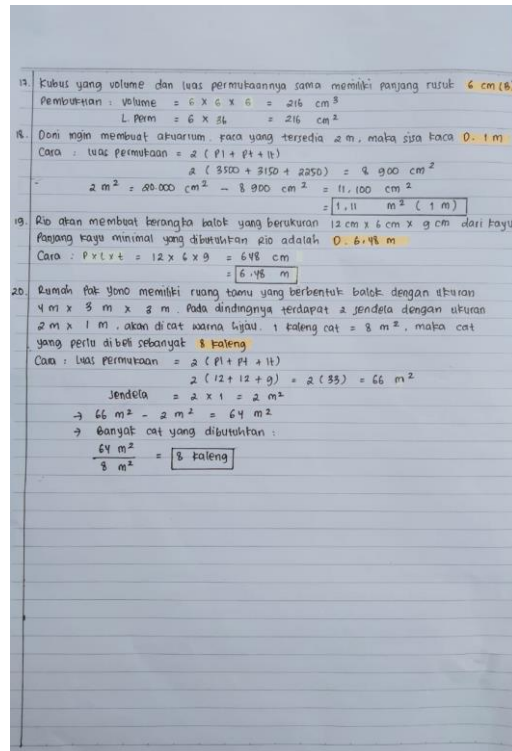 17. Kubus yang volume dan luas permukaannya sama memiliki panjang rusuk 6 cm (B)
Pembuktian : Volume = 6 x 6 x 6 = 216 cm³
L. Perm = 6 x 36 = 216 cm²
18. Doni ingin membuat akuarium. kaca yang tersedia 2 m, maka sisa kaca D. 1 m
Cara : luas permukaan = 2 ( Pl + Pt + lt)
2 ( 3500 + 3150 + 2250) = 8 900 cm²
2 m² = 20.000 cm² - 8 900 cm² = 11.100 cm²
= 1,11 m² ( 1 m)
19. Rio akan membuat kerangka balok yang berukuran 12 cm x 6 cm x 9 cm dari kayu
Panjang kayu minimal yang dibutuhkan Rio adalah D. 6,48 m
Cara : P x l x t = 12 x 6 x 9 = 648 cm
= 6,48 m
20. Rumah Pak Yono memiliki ruang tamu yang berbentuk balok dengan ukuran
4 m x 3 m x 3 m. Pada dindingnya terdapat 2 jendela dengan ukuran
2 m x 1 m, akan di cat warna hijau. 1 kaleng cat = 8 m², maka cat
yang perlu di beli sebanyak 8 kaleng
Cara : Luas permukaan = 2 ( Pl + Pt + lt)
2 ( 12 + 12 + 9) = 2 (33) = 66 m²
Jendela = 2 x 1 = 2 m²
→ 66 m² - 2 m² = 64 m²
→ Banyak cat yang dibutuhkan :
64 m²
8 m² = 8 kaleng